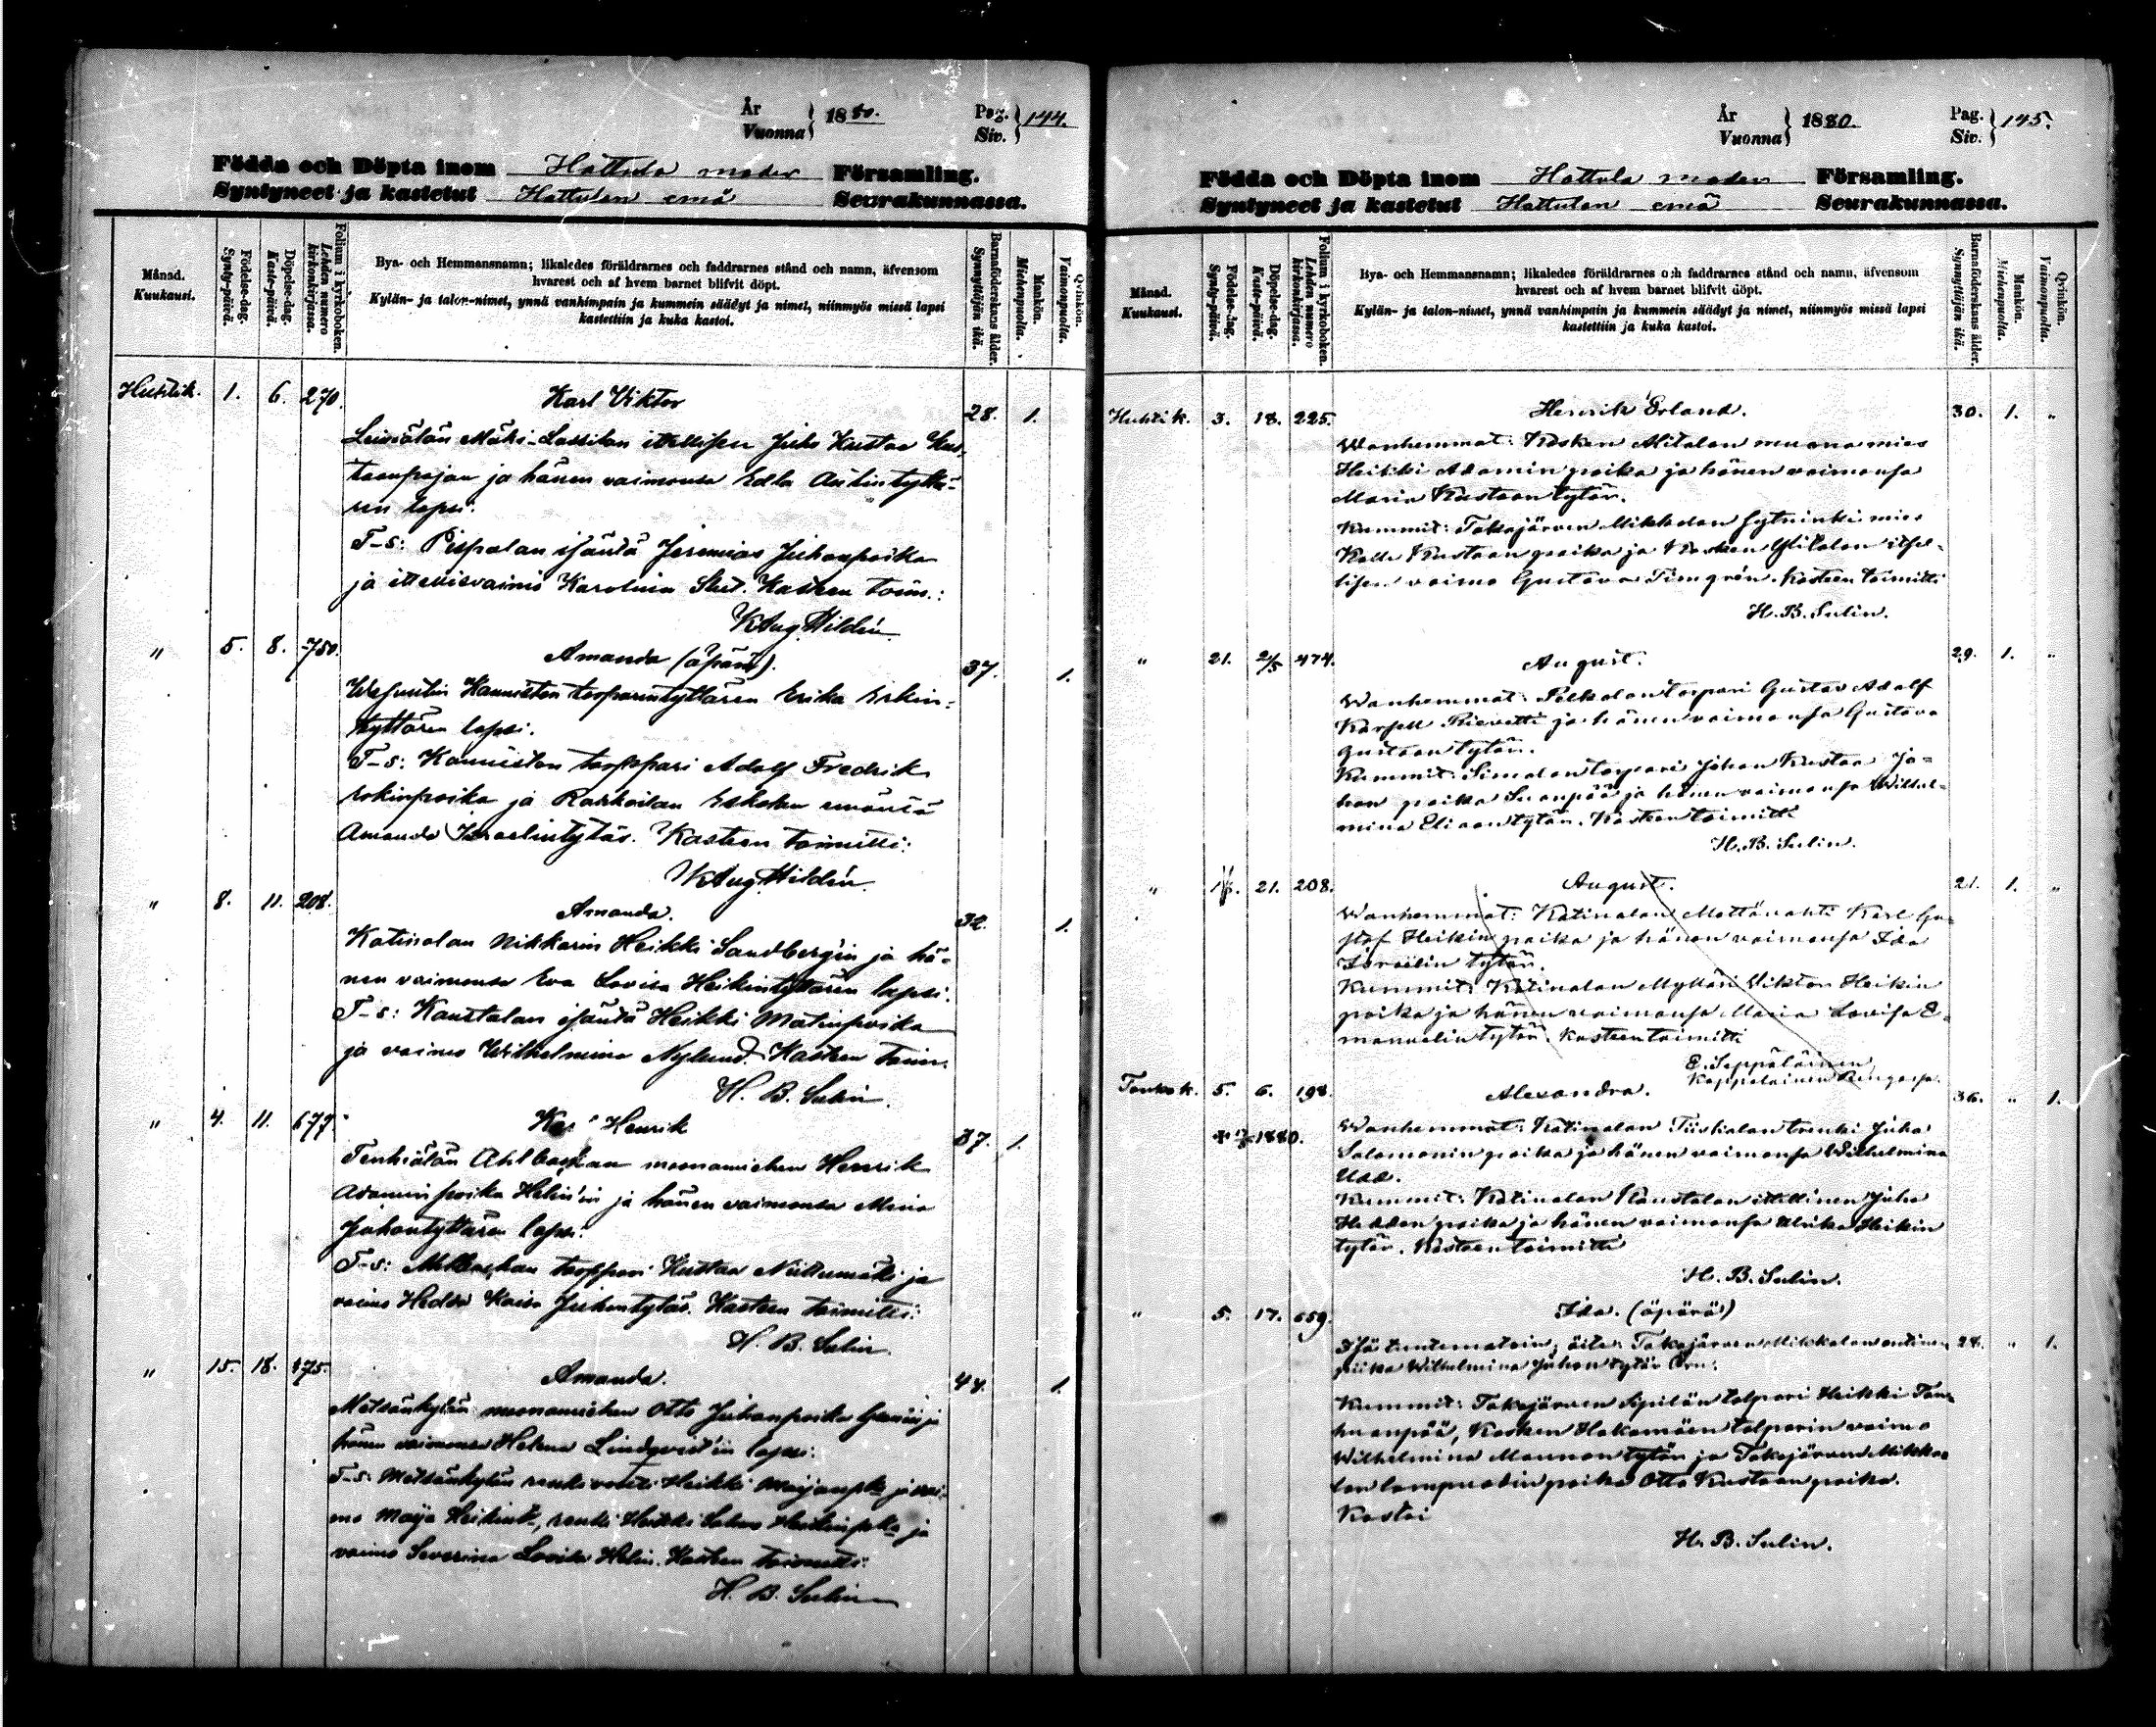 År
Vuonna } 1880. Pag. Siv. } 144.
Födda och Döpta inom Hattula moder Församling.
Syntyneet ja kastetut Hattulan emä Seurakunnassa.
Månad. Kuukausi.
Födelse-dag. Synty-päivä.
Döpelse-dag. Kaste-päivä.
Folium i kyrkoboken. Lehden numero kirkonkirjassa.
Bya- och Hemmansnamn; likaledes föräldrarnes och faddrarnes stånd och namn, äfvensom
hvarest och af hvem barnet blifvit döpt.
Kylän- ja talon-nimet, ynnä vanhimpain ja kummein säädyt ja nimet, niinmyös missä lapsi
kastettiin ja kuka kastoi.
Barnaföderskans ålder. Synnyttäjän ikä.
Mankön. Miehenpuolta.
Qvinkön. Vaimonpuolta.
Huhtik. 1. 6. 270. Karl Viktor 28. 1.
Leiniälän Mäki-Lassilan itellisen Juho Kustaa Kus-
taanpojan ja hänen vaimonsa Edla Antintyttä-
ren lapsi.
T-s: Pispalan isäntä Jeremias Juhanpoika
ja itellisvaimo Karolina Kasteen toim.:
K Aug. Hildén
" 5. 8. 750. Amanda (äpärä). 37. 1.
Kanniston torparintyttären Erika Erkin-
tyttären lapsi.
T-s: Kanniston torppari Adolf Fredrik
Erkinpoika ja Rahkoilan Eskolan emäntä
Amanda Israelintytär. Kasteen toimitti:
K Aug. Hildén
" 8. 11. 208. Amanda. 32. 1.
Katinalan Nikkarin Heikki Sandberg'in ja hä-
nen vaimonsa Eva Lovisa Heikintyttären lapsi.
T-s: Kanstalan isäntä Heikki Matinpoika
ja vaimo Wilhelmina Nylund. Kasteen toim.
H. B. Sulin.
" 4. 11. 677. Henrik 37. 1.
Tenhiälän Ahlbackan muonamiehen Henrik
Adaminpoika Helin'in ja hänen vaimonsa Miina
Juhontyttären lapsi.
T-s: torppari Kustaa Niittumäki ja
vaimo Hedda Kaisa Juhontytär. Kasteen toimitti:
H. B. Sulin
" 15. 18. 175. Amanda. 44. 1.
Metsänkylän muonamiehen Otto Juhanpoika ja
hänen vaimonsa Helena Lindqvist'in lapsi:
T-s: Metsänkylän renkivouti Heikki Maijanpka ja vai-
mo Maija Heikint., renki Heikki Heikinpka ja
vaimo Severina Lovisa Helin. Kasteen toimitti:
H. B. Sulin
År
Vuonna } 1880. Pag. Siv. } 145.
Födda och Döpta inom Hattula moder Församling.
Syntyneet ja kastetut Hattulan emä Seurakunnassa.
Månad. Kuukausi.
Födelse-dag. Synty-päivä.
Döpelse-dag. Kaste-päivä.
Folium i kyrkoboken. Lehden numero kirkonkirjassa.
Bya- och Hemmansnamn; likaledes föräldrarnes och faddrarnes stånd och namn, äfvensom
hvarest och af hvem barnet blifvit döpt.
Kylän- ja talon-nimet, ynnä vanhimpain ja kummein säädyt ja nimet, niinmyös missä lapsi
kastettiin ja kuka kastoi.
Barnaföderskans ålder. Synnyttäjän ikä.
Mankön. Miehenpuolta.
Qvinkön. Vaimonpuolta.
Huhtik. 3. 18. 225. Henrik Erland. 30. 1. "
Wanhemmat: Kosken Alitalon muonamies
Heikki Adaminpoika ja hänen vaimonsa
Maria Kustaantytär.
Kummit: Takajärven Mikkolan hytninkimies
Kalle Kustaanpoika ja Kosken Ylitalon itsel-
lisen vaimo Gustava Timgrén. Kasteen toimitti
H. B. Sulin.
" 21. 2/5 474. August. 29. 1. "
Wanhemmat: Pelkolan torpari Gustav Adolf
Karsell ja hänen vaimonsa Gustava
Gustaantytär.
Kummit: Simolan torpari Johan Kustaa Jo-
hanpoika Suonpää ja hänen vaimonsa Wilhel-
mina Eliaantytär. Kasteen toimitti
H. B. Sulin.
" 21. 208. August. 21. 1. "
Wanhemmat: Katinalan Karl Gu-
staf Heikinpoika ja hänen vaimonsa Ida
Israelin tytär.
Kummit: Katinalan Mylläri Viktor Heikin
poika ja hänen vaimonsa Maria Lovisa E-
manuelintytär. Kasteen toimitti
E. Seppäläinen
Kappalainen Rengossa.
Toukok. 5. 6. 198. Alexandra. 36. " 1.
1880. Wanhemmat: Katinalan Tiiskalan trenki Juha
Salomoninpoika ja hänen vaimonsa Wilhelmina
Udd.
Kummit: Katinalan Kanstalan itellinen Juho
Heddanpoika ja hänen vaimonsa Ulrika Heikin
tytär. Kasteen toimitti
H. B. Sulin.
" 5. 17. 659. Ida. (äpärä)
Isä tuntematoin; äiti: Takajärven Mikkolan entinen 28. " 1.
piika Wilhelmina Juhontytär Orn:
Kummit: Takajärven Sipilän torpari Heikki Tan-
huanpää, Kosken Hakamäen torparin vaimo
Wilhelmina Maunontytär ja Takajärven Mikko-
lan lampuodinpoika Otto Kustaanpoika.
Kastoi
H. B. Sulin.